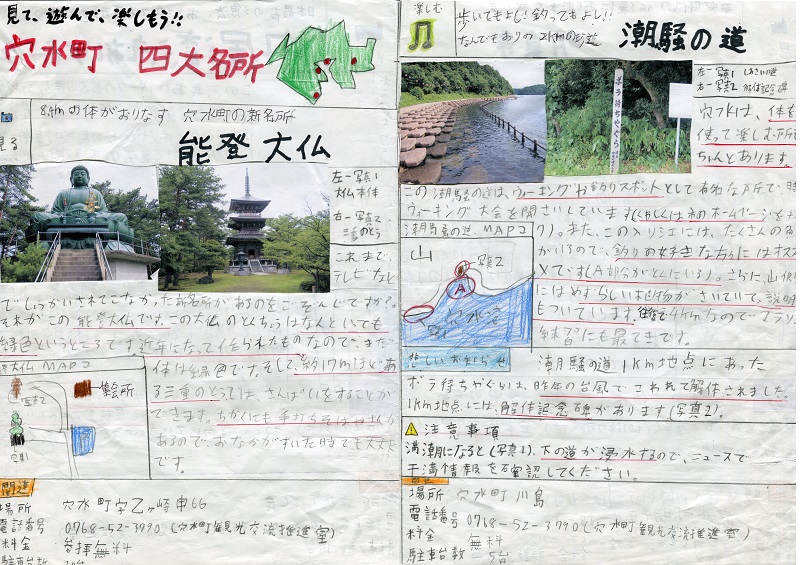 見て、遊んで、楽しもう!!
穴水町 四大名所
見る
8.4mの体がおりなす 穴水町の新名所
能登大仏
左一写真1
大仏本体
右一写真2
三重のとう
これまで、
テレビなど
でしょうかいされてこなかった新名所があるのをごぞんじですか?
それがこの能登大仏です。この大仏のとくちょうはなんといっても
緑色というところです。近年になって作られたものなので、まだ
体は緑色です。そして、約17mほどあ
る三重のとうでは、さんぱいをすることが
できます。ちかくにも手打ちそば
あるので、おなかがすいた時でも大丈夫
です。
大仏MAP
写真2
写真1
場所 穴水町字乙ヶ崎申66
電話番号 0768-52-3990(穴水町観光交流推進室)
料金 参拝無料
駐車台数
楽しむ
歩いてもよし!釣ってもよし!!
なんでもありの2kmの歩道
潮騒の道
左一写真1 しおさいの道
右一写真2 解体記念碑
穴水は、体を
使って楽しむ所も
ちゃんとあります。
ボラ待ちやぐら
この潮騒の道は、ウォーキングやお釣りスポットとして有名な戸所で、時
ウォーキング大会を開さいしています(くわしくは市のホームページをチェッ
ク)。また、この入り江には、たくさんの魚
がいるので、釣りの好きな方にはオスス
メです(A部分がとくにいる)。さらに、山化
にはめずらしい植物がさいていて、説明
もついています。往復で4kmなのでマラソン
練習にも最てきです。
潮騒の道 MAP
山
写真2
A
悲しいお知らせ
潮騒の道1km地点にあった
ボラ待ちやぐらは、昨年の台風でこわれて解体されました。
1km地点には、解体記念碑があります(写真2)。
注意事項
満潮になると(写真1)、下の道が浸水するので、ニュースで
干満情報を確認してください。
場所 穴水町 川島
電話番号 0768-52-3990(穴水町観光交流推進室)
料金 無料
駐車台数 5台